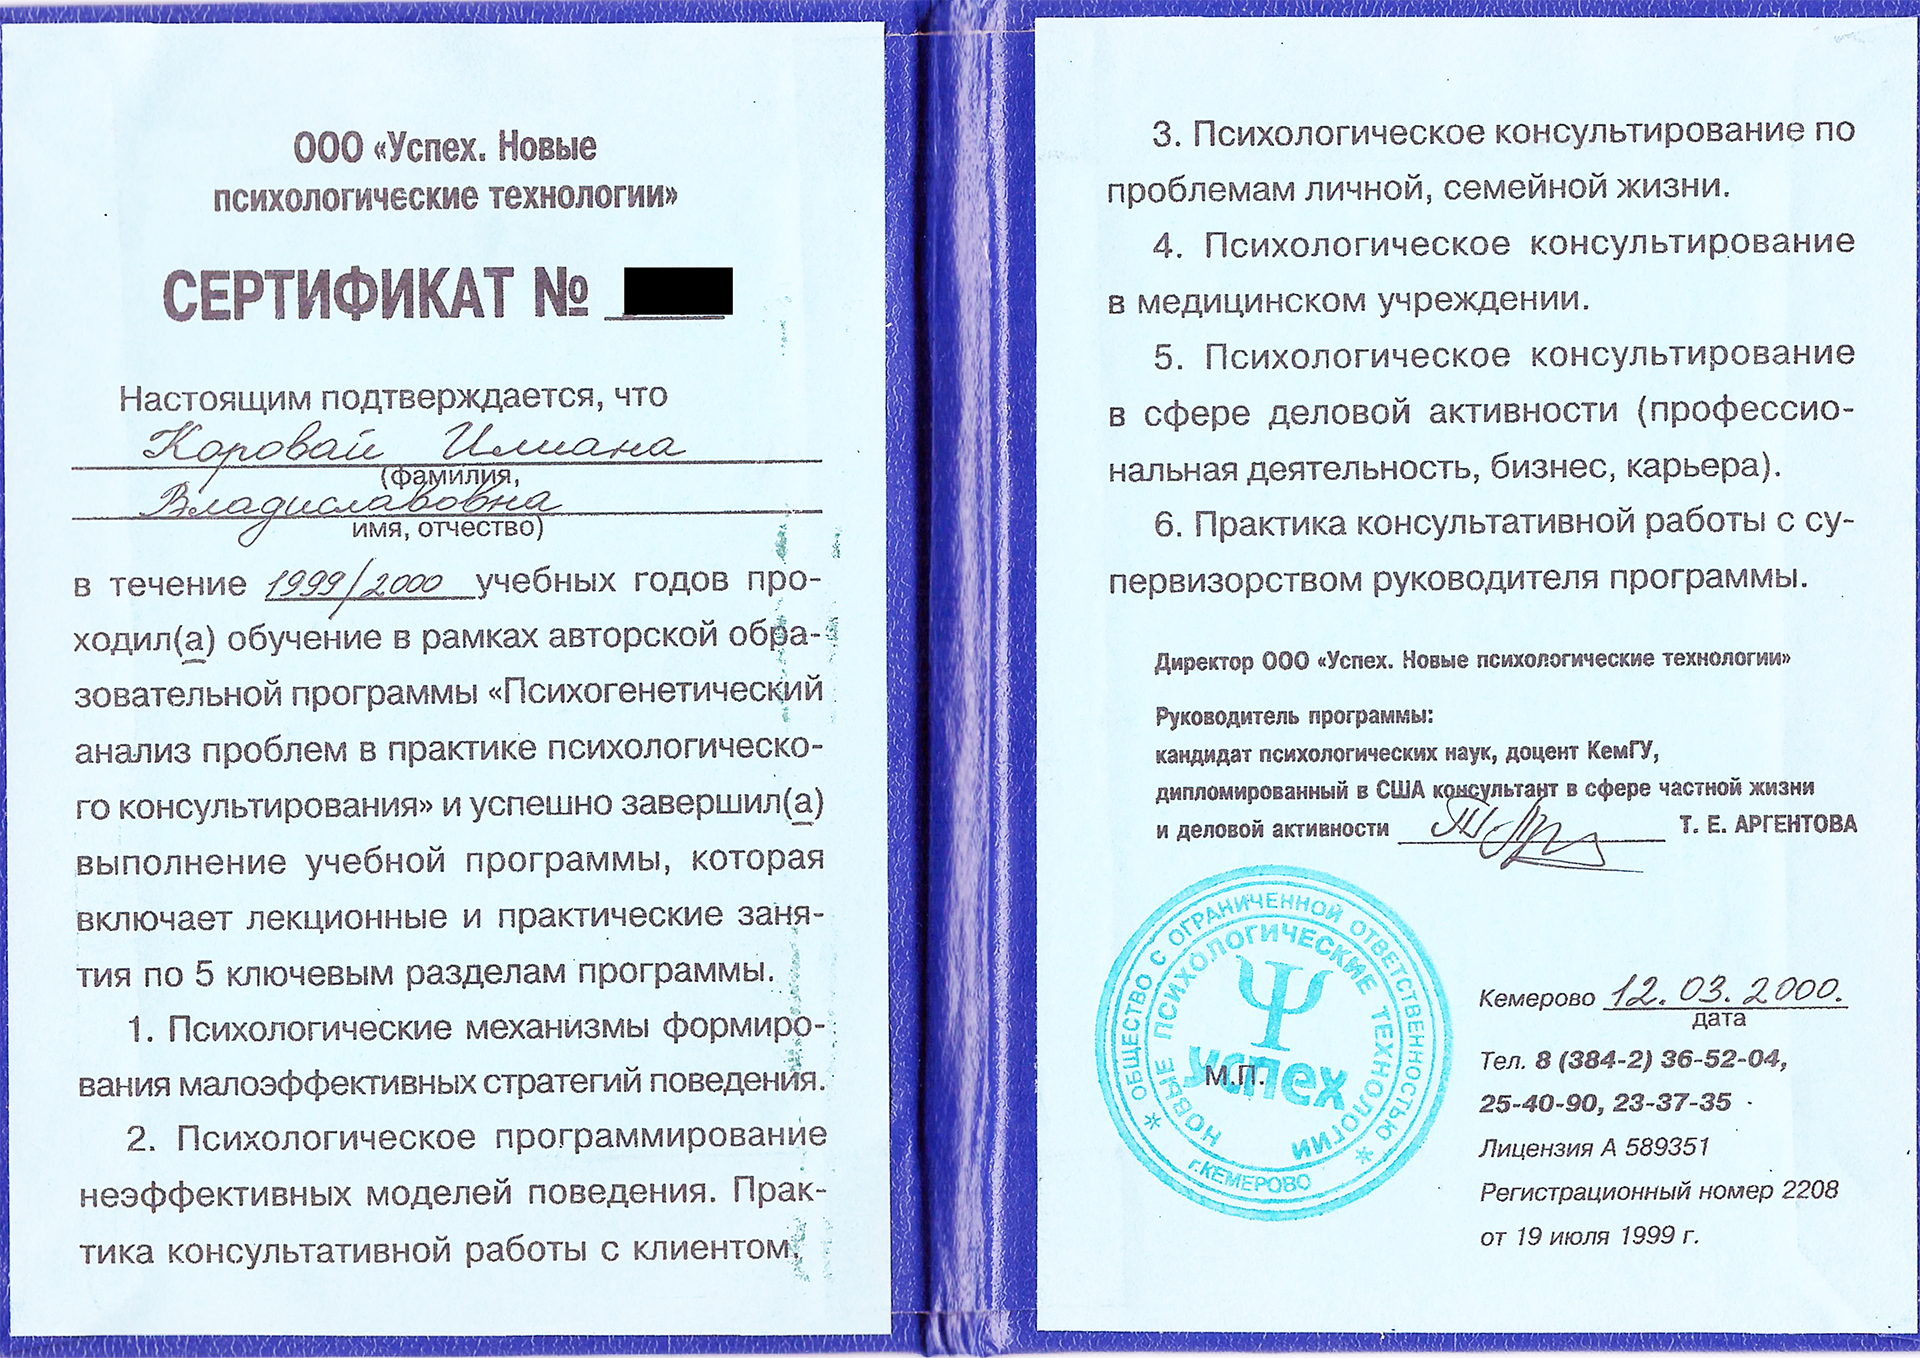 ООО «Успех. Новые
психологические технологии»
СЕРТИФИКАТ №
Настоящим подтверждается, что
Коровай Илиана
(фамилия,
Владиславовна
имя, отчество)
в течение 1999/2000 учебных годов про-
ходил(а) обучение в рамках авторской обра-
зовательной программы «Психогенетический
анализ проблем в практике психологическо-
го консультирования» и успешно завершил(а)
выполнение учебной программы, которая
включает лекционные и практические заня-
тия по 5 ключевым разделам программы.
1. Психологические механизмы формиро-
вания малоэффективных стратегий поведения.
2. Психологическое программирование
неэффективных моделей поведения. Прак-
тика консультативной работы с клиентом.
3. Психологическое консультирование по
проблемам личной, семейной жизни.
4. Психологическое консультирование
в медицинском учреждении.
5. Психологическое консультирование
в сфере деловой активности (профессио-
нальная деятельность, бизнес, карьера).
6. Практика консультативной работы с су-
первизорством руководителя программы.
Директор ООО «Успех. Новые психологические технологии»
Руководитель программы:
кандидат психологических наук, доцент КемГУ,
дипломированный в США консультант в сфере частной жизни
и деловой активности Т. Е. АРГЕНТОВА
ОБЩЕСТВО С ОГРАНИЧЕННОЙ ОТВЕТСТВЕННОСТЬЮ
НОВЫЕ ПСИХОЛОГИЧЕСКИЕ ТЕХНОЛОГИИ
успех
М.П.
г.КЕМЕРОВО
Кемерово 12.03.2000.
дата
Тел. 8 (384-2) 36-52-04,
25-40-90, 23-37-35
Лицензия А 589351
Регистрационный номер 2208
от 19 июля 1999 г.